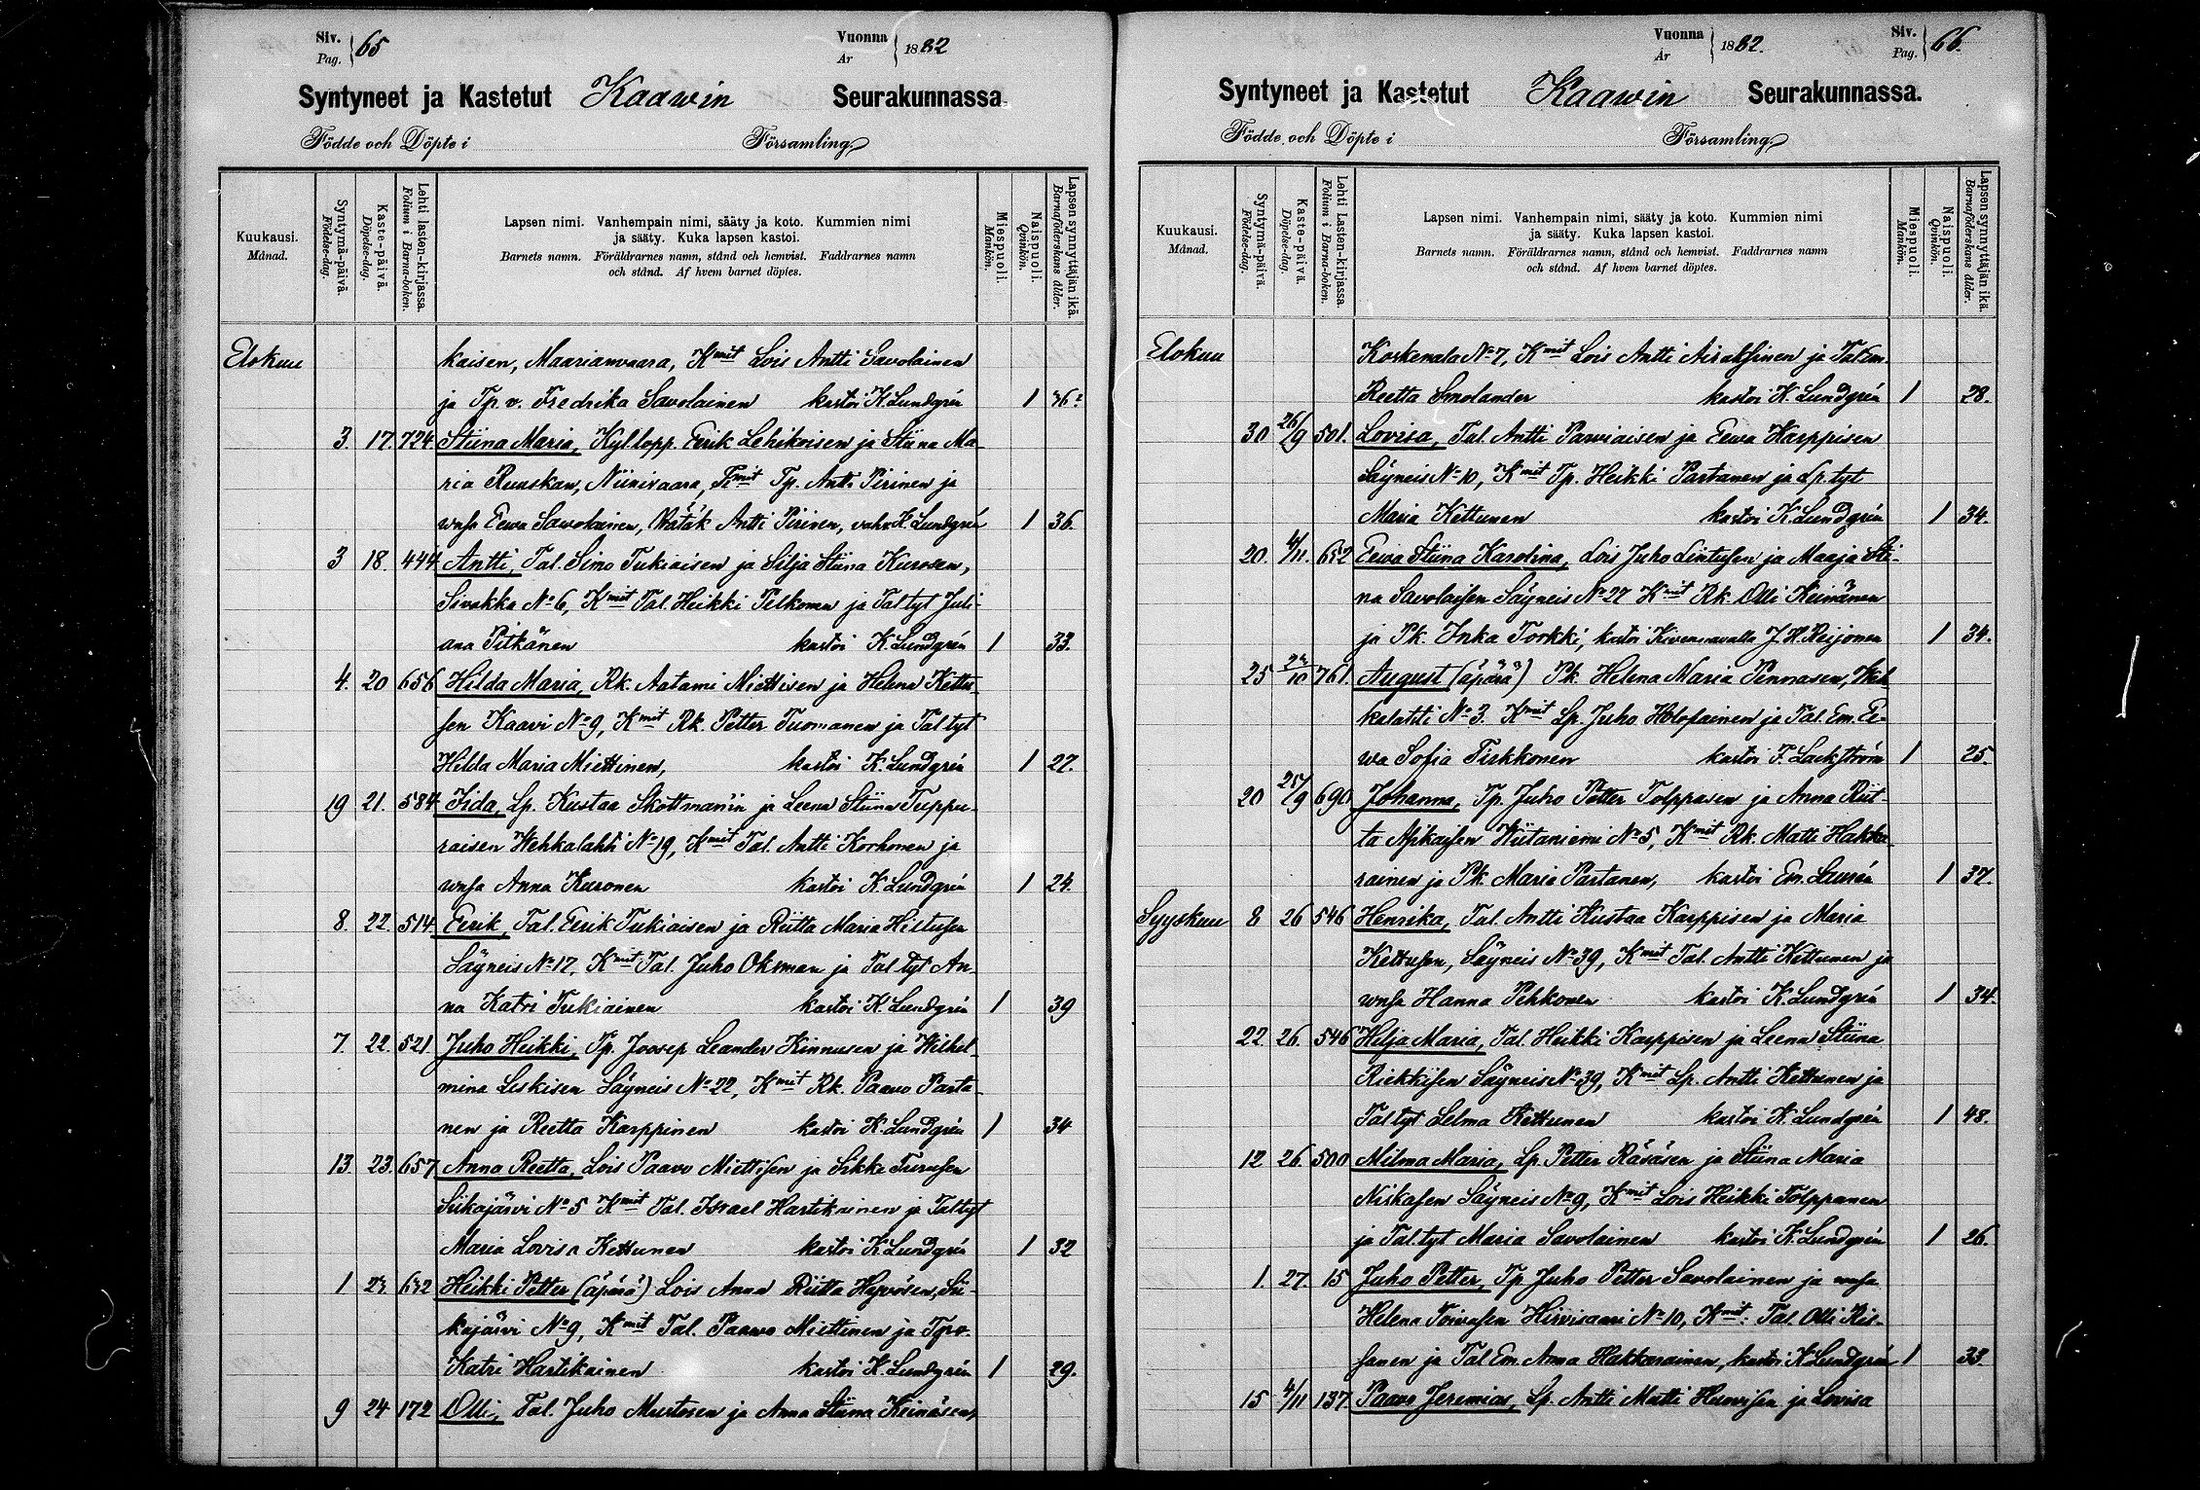 Siv. Pag. 65
Vuonna År 1882
Syntyneet ja Kastetut Kaawin Seurakunnassa.
Födde och Döpte i Församling
Kuukausi. Månad.
Syntymä-päivä. Födelse-dag.
Kaste-päivä. Döpelse-dag.
Lehti lasten-kirjassa. Folium i Barna-boken.
Lapsen nimi. Vanhempain nimi, sääty ja koto. Kummien nimi
ja sääty. Kuka lapsen kastoi.
Barnets namn. Föräldrarnes namn, stånd och hemvist. Faddrarnes namn
och stånd. Af hvem barnet döptes.
Miespuoli. Mankön.
Naispuoli. Qvinkön.
Lapsen synnyttäjän ikä. Barnaföderskans ålder.
Elokuu kaisen, Maarianvaara, Kmit Lois Antti Savolainen
ja Tp. v. Fredrika Savolainen kastoi K. Lundgrén 1 36
3. 17. 724. Stiina Maria, Kyl.lopp. Eerik Lehikoisen ja Stiina Ma-
ria Ruuskan, Niinivaara, Kmit Tp. Antti Pirinen ja
wmsa Eewa Sawolainen, Antti Pirinen, K. Lundgrén 1 36.
3 18. 444 Antti, Tal. Simo Tukiaisen ja Silja Stiina Kurosen,
Sivakka No 6, Kmit Tal. Heikki Pelkonen ja Tal tyt Juli-
ana Pitkänen kastoi K. Lundgrén 1 33.
4. 20 656 Hilda Maria, Rk. Aatami Miettisen ja Helena Kettu-
sen Kaavi No 9, Kmit Rk. Petter Tuomanen ja Tal tyt
Hilda Maria Miettinen, kastoi K. Lundgrén 1 27.
19 21. 584 Iida, Lp. Kustaa Skottman'in ja Leena Stiina Tuppu-
raisen Wehkalahti No 19, Kmit Tal. Antti Korhonen ja
wmsa Anna Kuronen kastoi K. Lundgrén 1 24.
8. 22. 514 Eerik, Tal. Eerik Tukiaisen ja Riitta Maria Hiltusen
Säyneis No 17, Kmit Tal. Juho Oksman ja Tal tyt An-
na Katri Tukiainen kastoi K. Lundgrén 1 39
7. 22. 521 Juho Heikki, Tp. Joosep Leander Kinnusen ja Wilhel-
mina Leskisen Säyneis No 22, Kmit Rk. Paavo Parta-
nen ja Reetta Karppinen kastoi K. Lundgrén 1 34
13. 23. 657 Anna Reetta, Lois Paavo Miettisen ja Sikka Turusen
Siikajärvi No 5 Kmit Tal. Israel Hartikainen ja Tal tyt
Maria Lovisa Kettunen kastoi K. Lundgrén 1 32
1 23. 632 Heikki Petter (äpärä) Lois Anna Riitta Hyvösen, Sii-
kajärvi No 9, Kmit Tal. Paavo Miettinen ja Tp.v.
Katri Hartikainen kastoi K. Lundgrén 1 29.
9 24 172 Olli, Tal. Juho Murtosen ja Anna Stiina Keinäsen,
Vuonna År 1882.
Siv. Pag. 66.
Syntyneet ja Kastetut Kaawin Seurakunnassa.
Födde och Döpte i Församling
Kuukausi. Månad.
Syntymä-päivä. Födelse-dag.
Kaste-päivä. Döpelse-dag.
Lehti Lasten-kirjassa. Folium i Barna-boken.
Lapsen nimi. Vanhempain nimi, sääty ja koto. Kummien nimi
ja sääty. Kuka lapsen kastoi.
Barnets namn. Föräldrarnes namn, stånd och hemvist. Faddrarnes namn
och stånd. Af hvem barnet döptes.
Miespuoli. Mankön.
Naispuoli. Qvinkön.
Lapsen synnyttäjän ikä. Barnaföderskans ålder.
Elokuu Koskenala No 7, Kmit Lois Antti Airaksinen ja Tal Em.
Reetta Smolander kastoi K. Lundgrén 1 28.
30 26/9 501. Lovisa, Tal. Antti Parviaisen ja Eewa Karppisen
Säyneis No 10, Kmit Tp. Heikki Partanen ja Lp. tyt
Maria Kettunen kastoi K. Lundgrén 1 34.
20. 4/11. 652 Eewa Stiina Karolina, Lois Juho Lintusen ja Maaja Sti-
na Savolaisen Säyneis No 27 Kmit Rk. Olli Keinänen
ja Pk. Inka Torkki, kastoi J. H. Reijonen 1 34.
25 23/10 761. August (äpärä) Pk. Helena Maria Pennasen, Weh-
kalahti No 3. Kmit Lp. Juho Holopainen ja Tal. Em. Ee-
wa Sofia Tirkkonen kastoi F. Lackström 1 25.
20 25/9 690 Johanna, Tp. Juho Petter Tolppasen ja Anna Riit-
ta Asikaisen Wiitaniemi No 5, Kmit Rk. Matti Hakka-
rainen ja Pk. Maria Partanen, kastoi Em. Laurén 1 37.
Syyskuu 8 26 546 Henrika, Tal. Antti Kustaa Karppisen ja Maria
Kettusen, Säyneis No 39, Kmit Tal. Antti Kettunen ja
wmsa Hanna Pehkonen kastoi K. Lundgrén 1 34.
22. 26. 546 Hilja Maria, Tal. Heikki Karppisen ja Leena Stiina
Riekkisen Säyneis No 39, Kmit Lp. Antti Kettunen ja
Tal tyt Selma Kettunen kastoi K. Lundgrén 1 48.
12 26. 500 Milma Maria, Lp. Petter Räsäsen ja Stiina Maria
Niskasen Säyneis No 9, Kmit Lois Heikki Tolppanen
ja Tal. tyt Maria Savolainen kastoi K. Lundgrén 1 26.
1. 27. 15 Juho Petter, Tp. Juho Petter Savolainen ja wmsa
Helena Toivasen Hirvisaari No 10, Kmit: Tal. Olli Ris-
sanen ja Tal Em. Anna Hakkarainen, kastoi K. Lundgrén 1 33.
15 4/11 137 Paavo Jeremias, Lp. Antti Matti Husoisen ja Lovisa